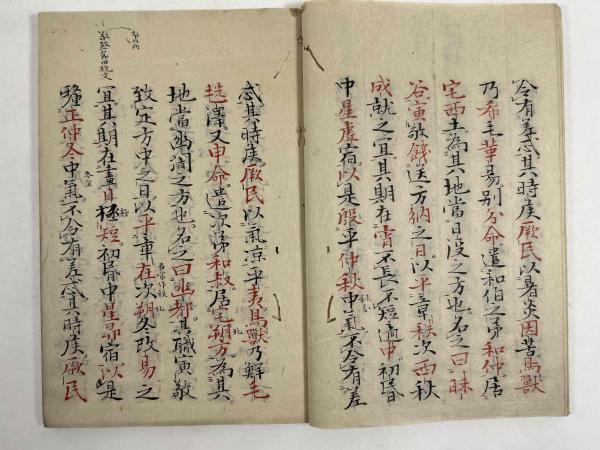 令有差忒其時候厥民以暑炎因苦鳥獸
乃希毛革易別分命遣和伯之弟和仲居
宅西土為其地當日没之方也名之曰昧
谷寅敬餞送方納之日以平章秩次西秋
成就之宜其期在宵不長不短適中初昏
中星虚宿以是殷平仲秋中氣不令有差
忒其時候厥民以氣凉平夷鳥獸乃鮮毛
毨澤又申命遣次弟和叔居宅朔方為其
地當幽闇之方也名之曰幽都其職寅敬
致定方中之日以平章在次朔冬改易之
宜其期在晝日極短初昏中星昴宿以是
殭正仲冬中氣不令有差忒其時候厥民